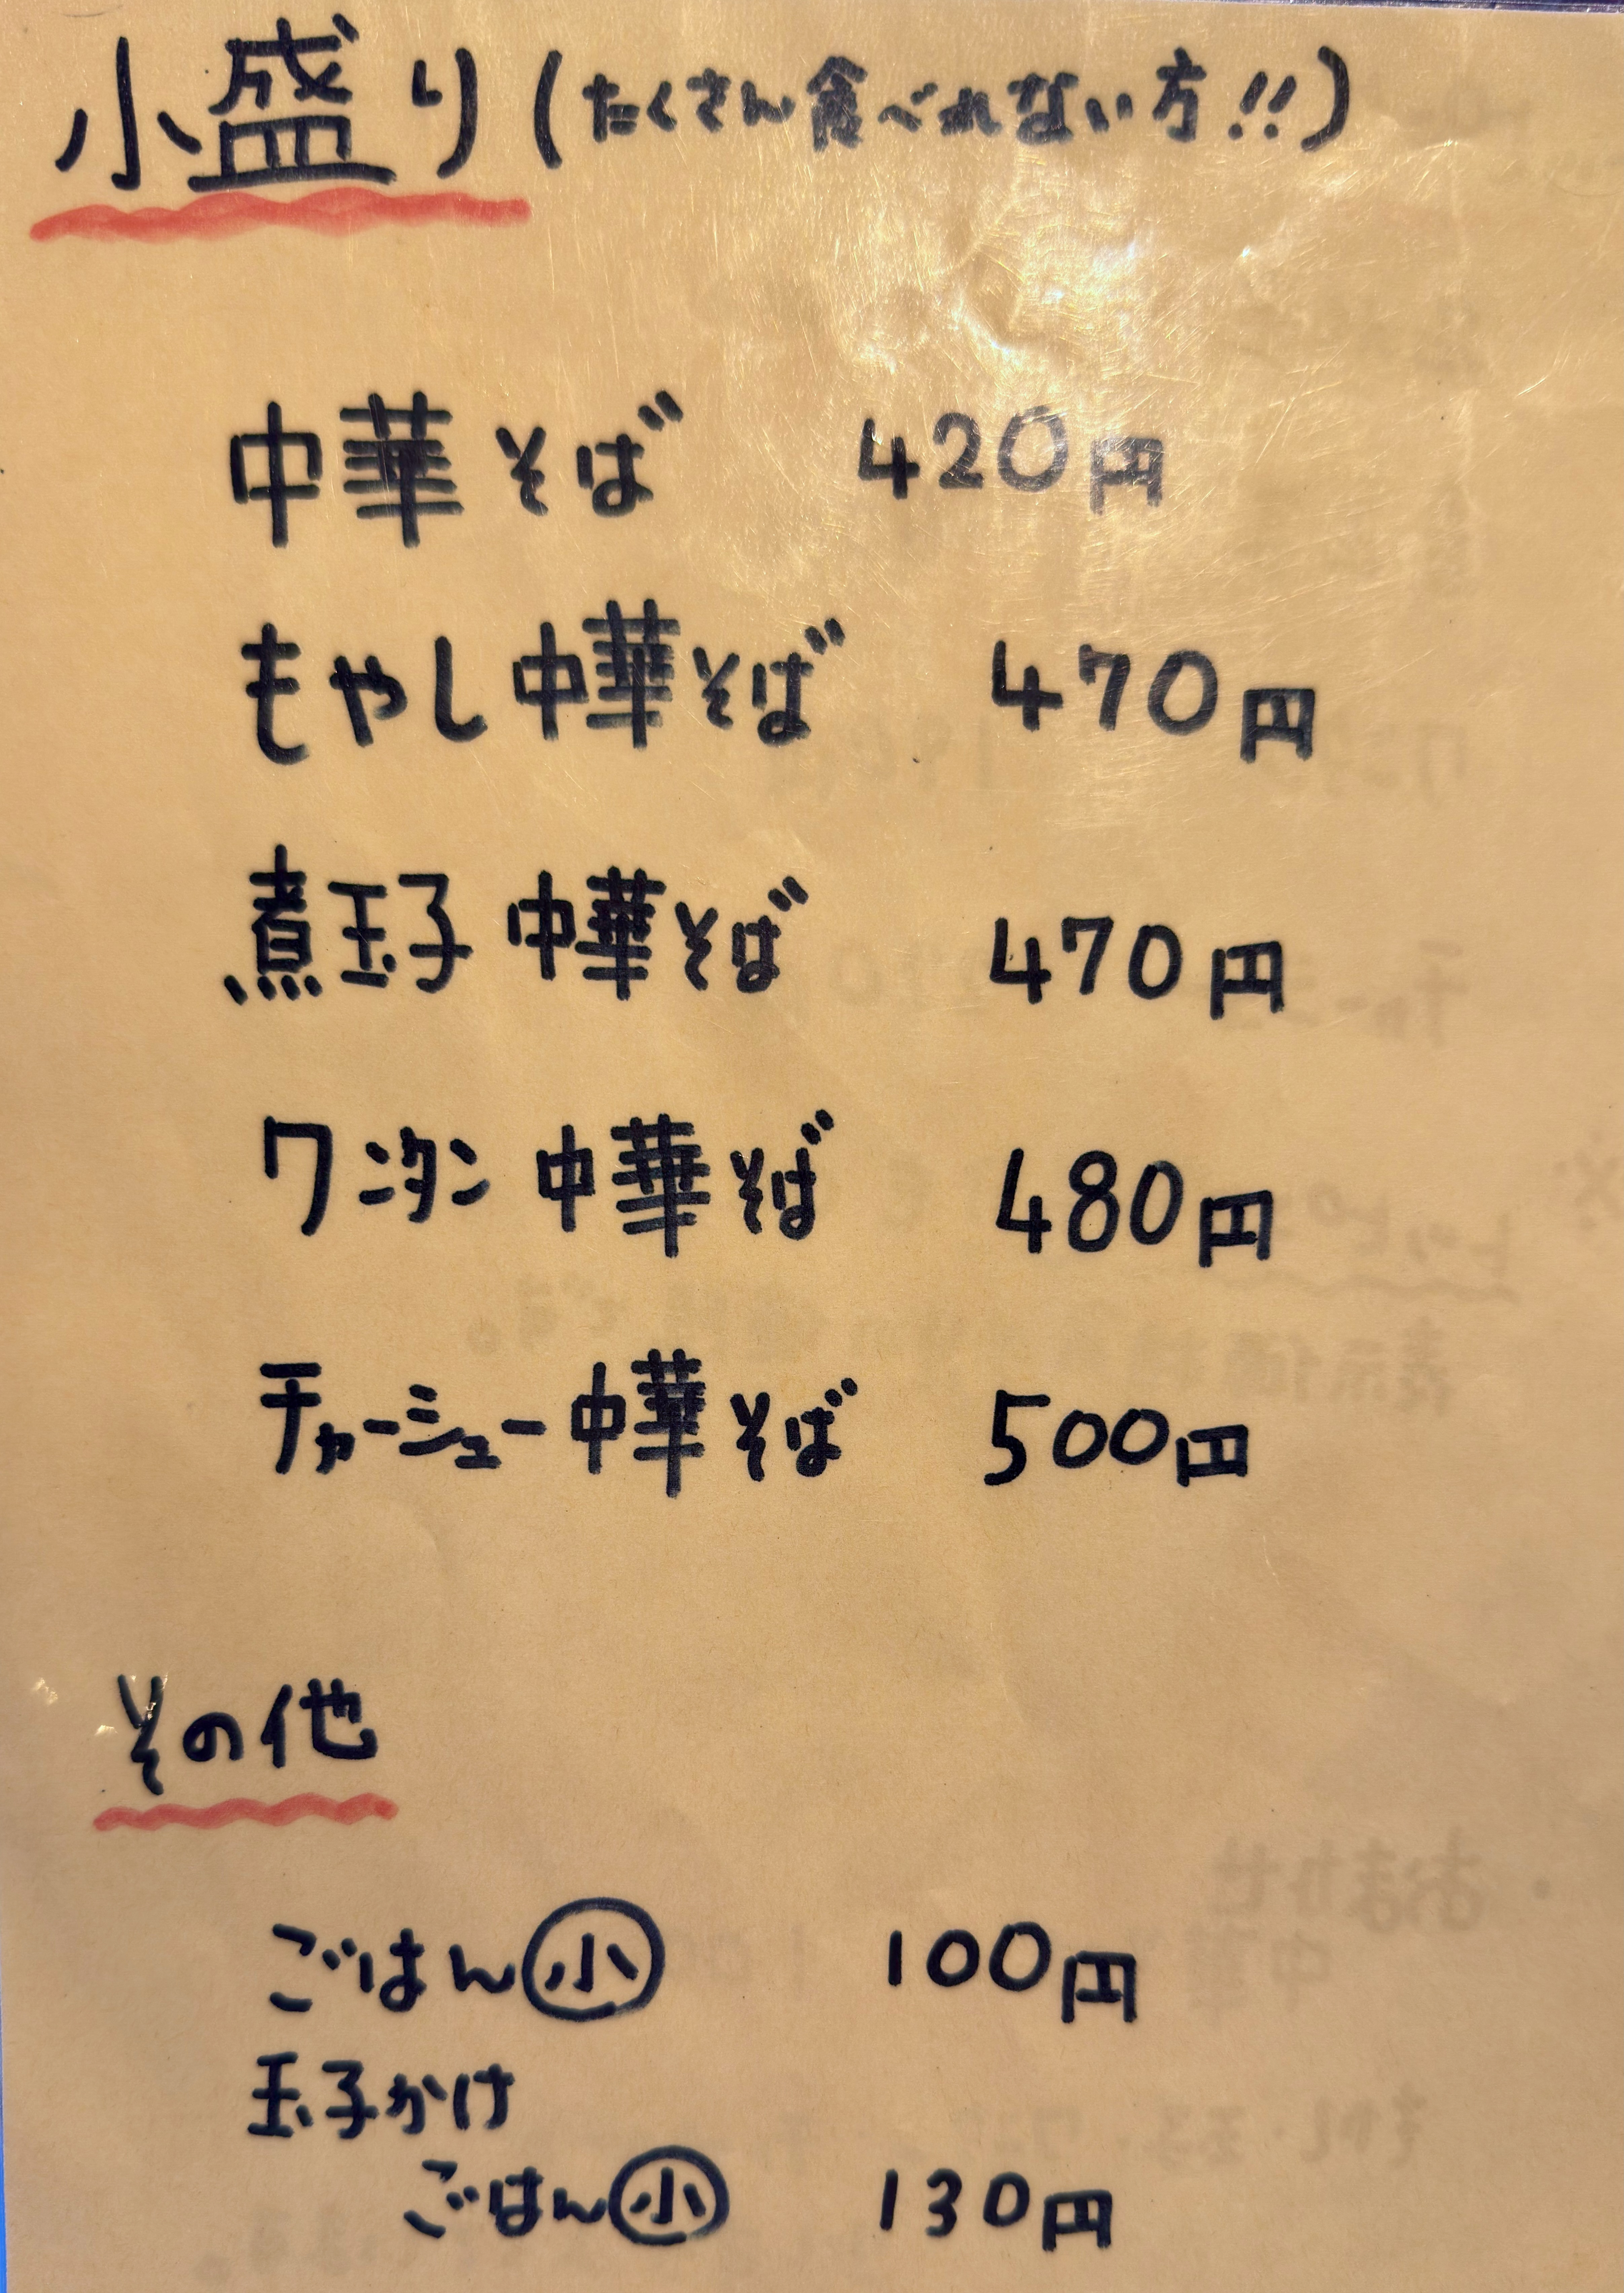 小盛り(たくさん食べれない方!!)
中華そば 420円
もやし中華そば 470円
煮玉子中華そば 470円
ワンタン中華そば 480円
チャーシュー中華そば 500円
その他
ごはん㊙小 100円
玉子かけ
ごはん小 130円